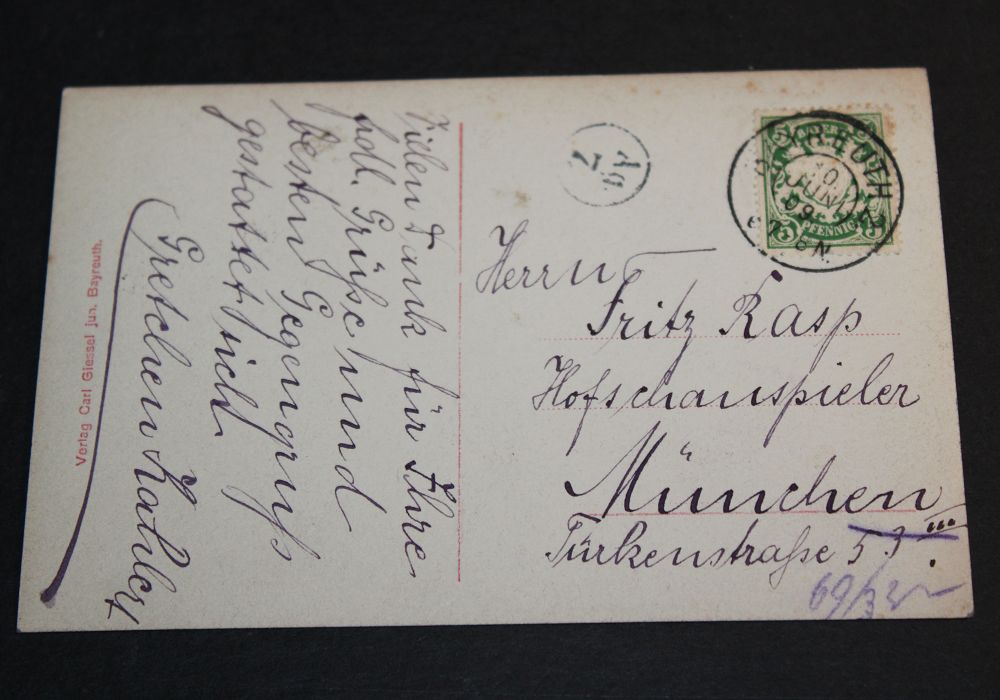 Vielen Dank für Ihre
frdl. Grüße und
besten Gegengruß
gestattet sich
Gretchen
Verlag Carl Giessel jun. Bayreuth.
BAYREUTH 2
10 JUN
09
6-7 N.
BAYERN
5 5
5 PFENNIG 5
Herrn
Fritz Rasp
Hofschauspieler
München
Türkenstraße 53 III.